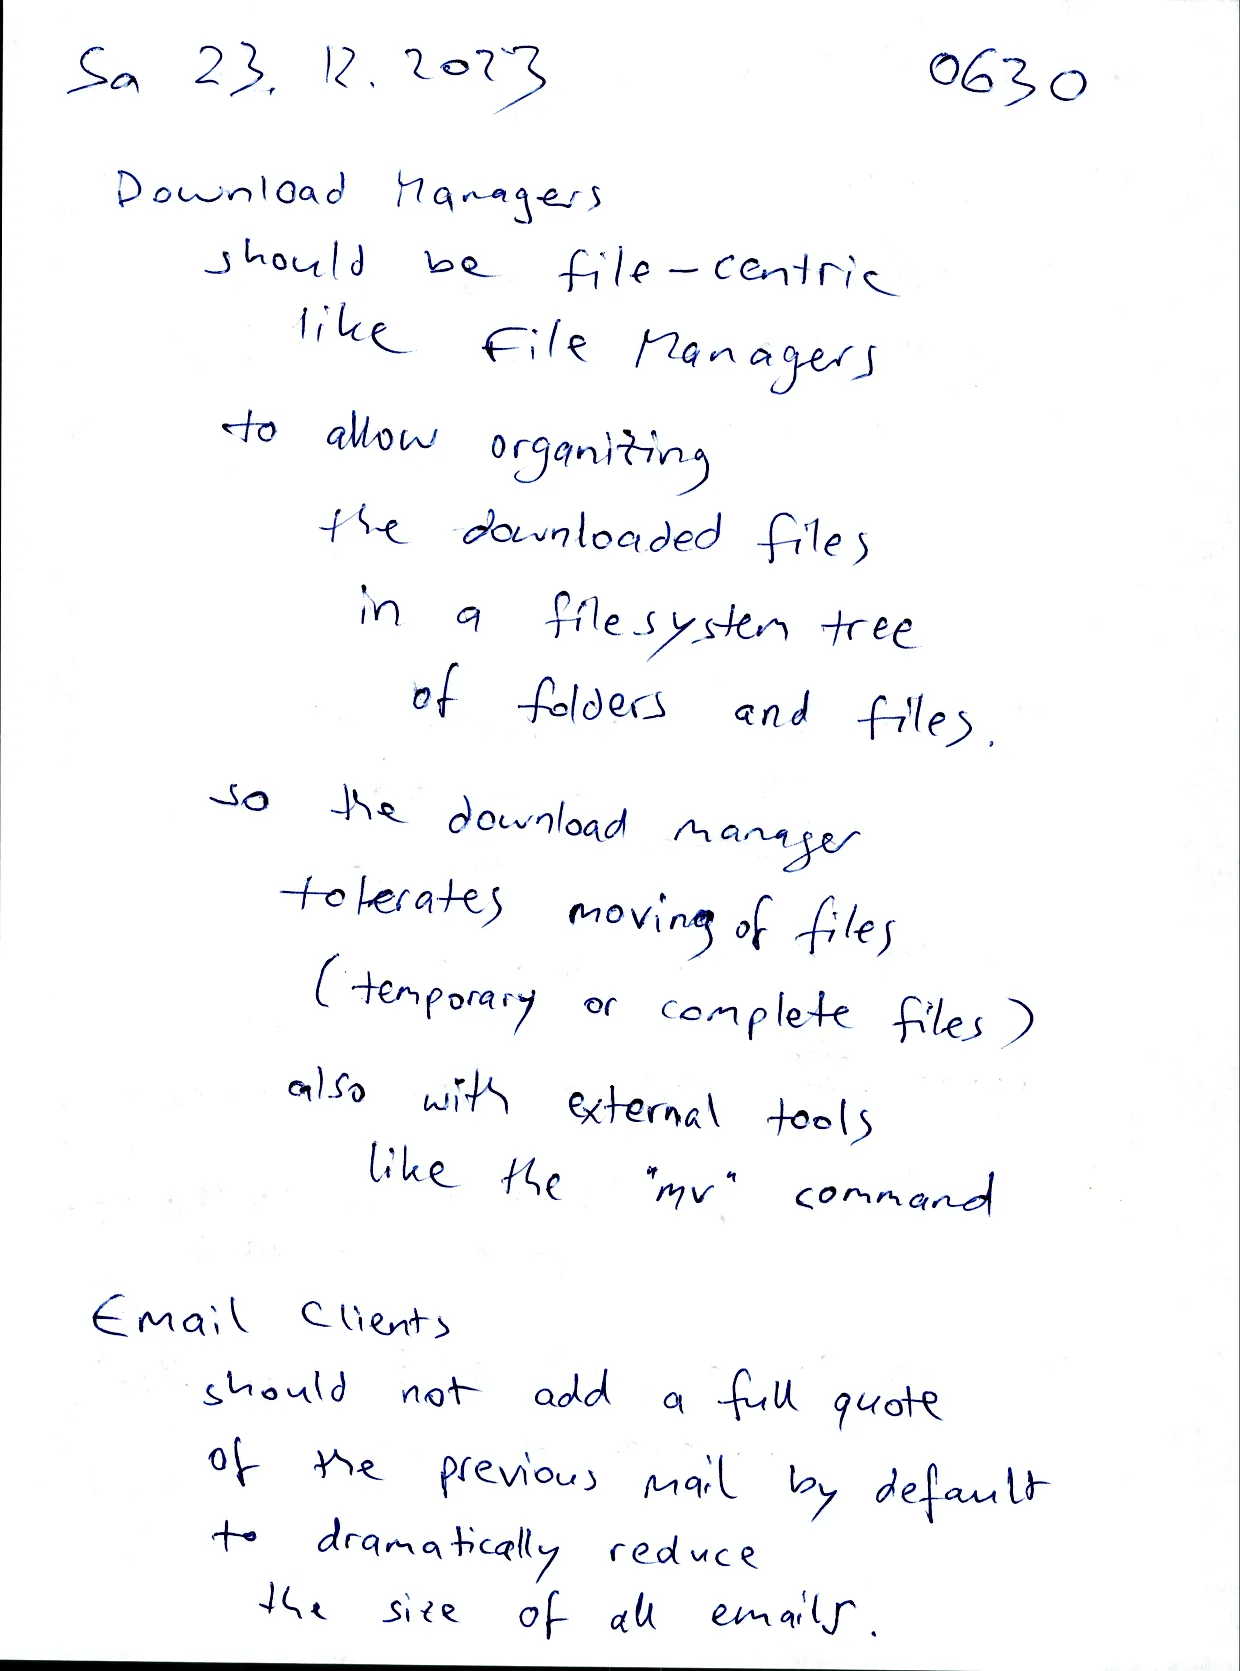 Sa 23. 12. 2023 0630
Download Managers
should be file-centric
like File Managers
to allow organizing
the downloaded files
in a filesystem tree
of folders and files.
so the download manager
tolerates moving of files
(temporary or complete files)
also with external tools
like the "mv" command
Email Clients
should not add a full quote
of the previous mail by default
to dramatically reduce
the size of all emails.